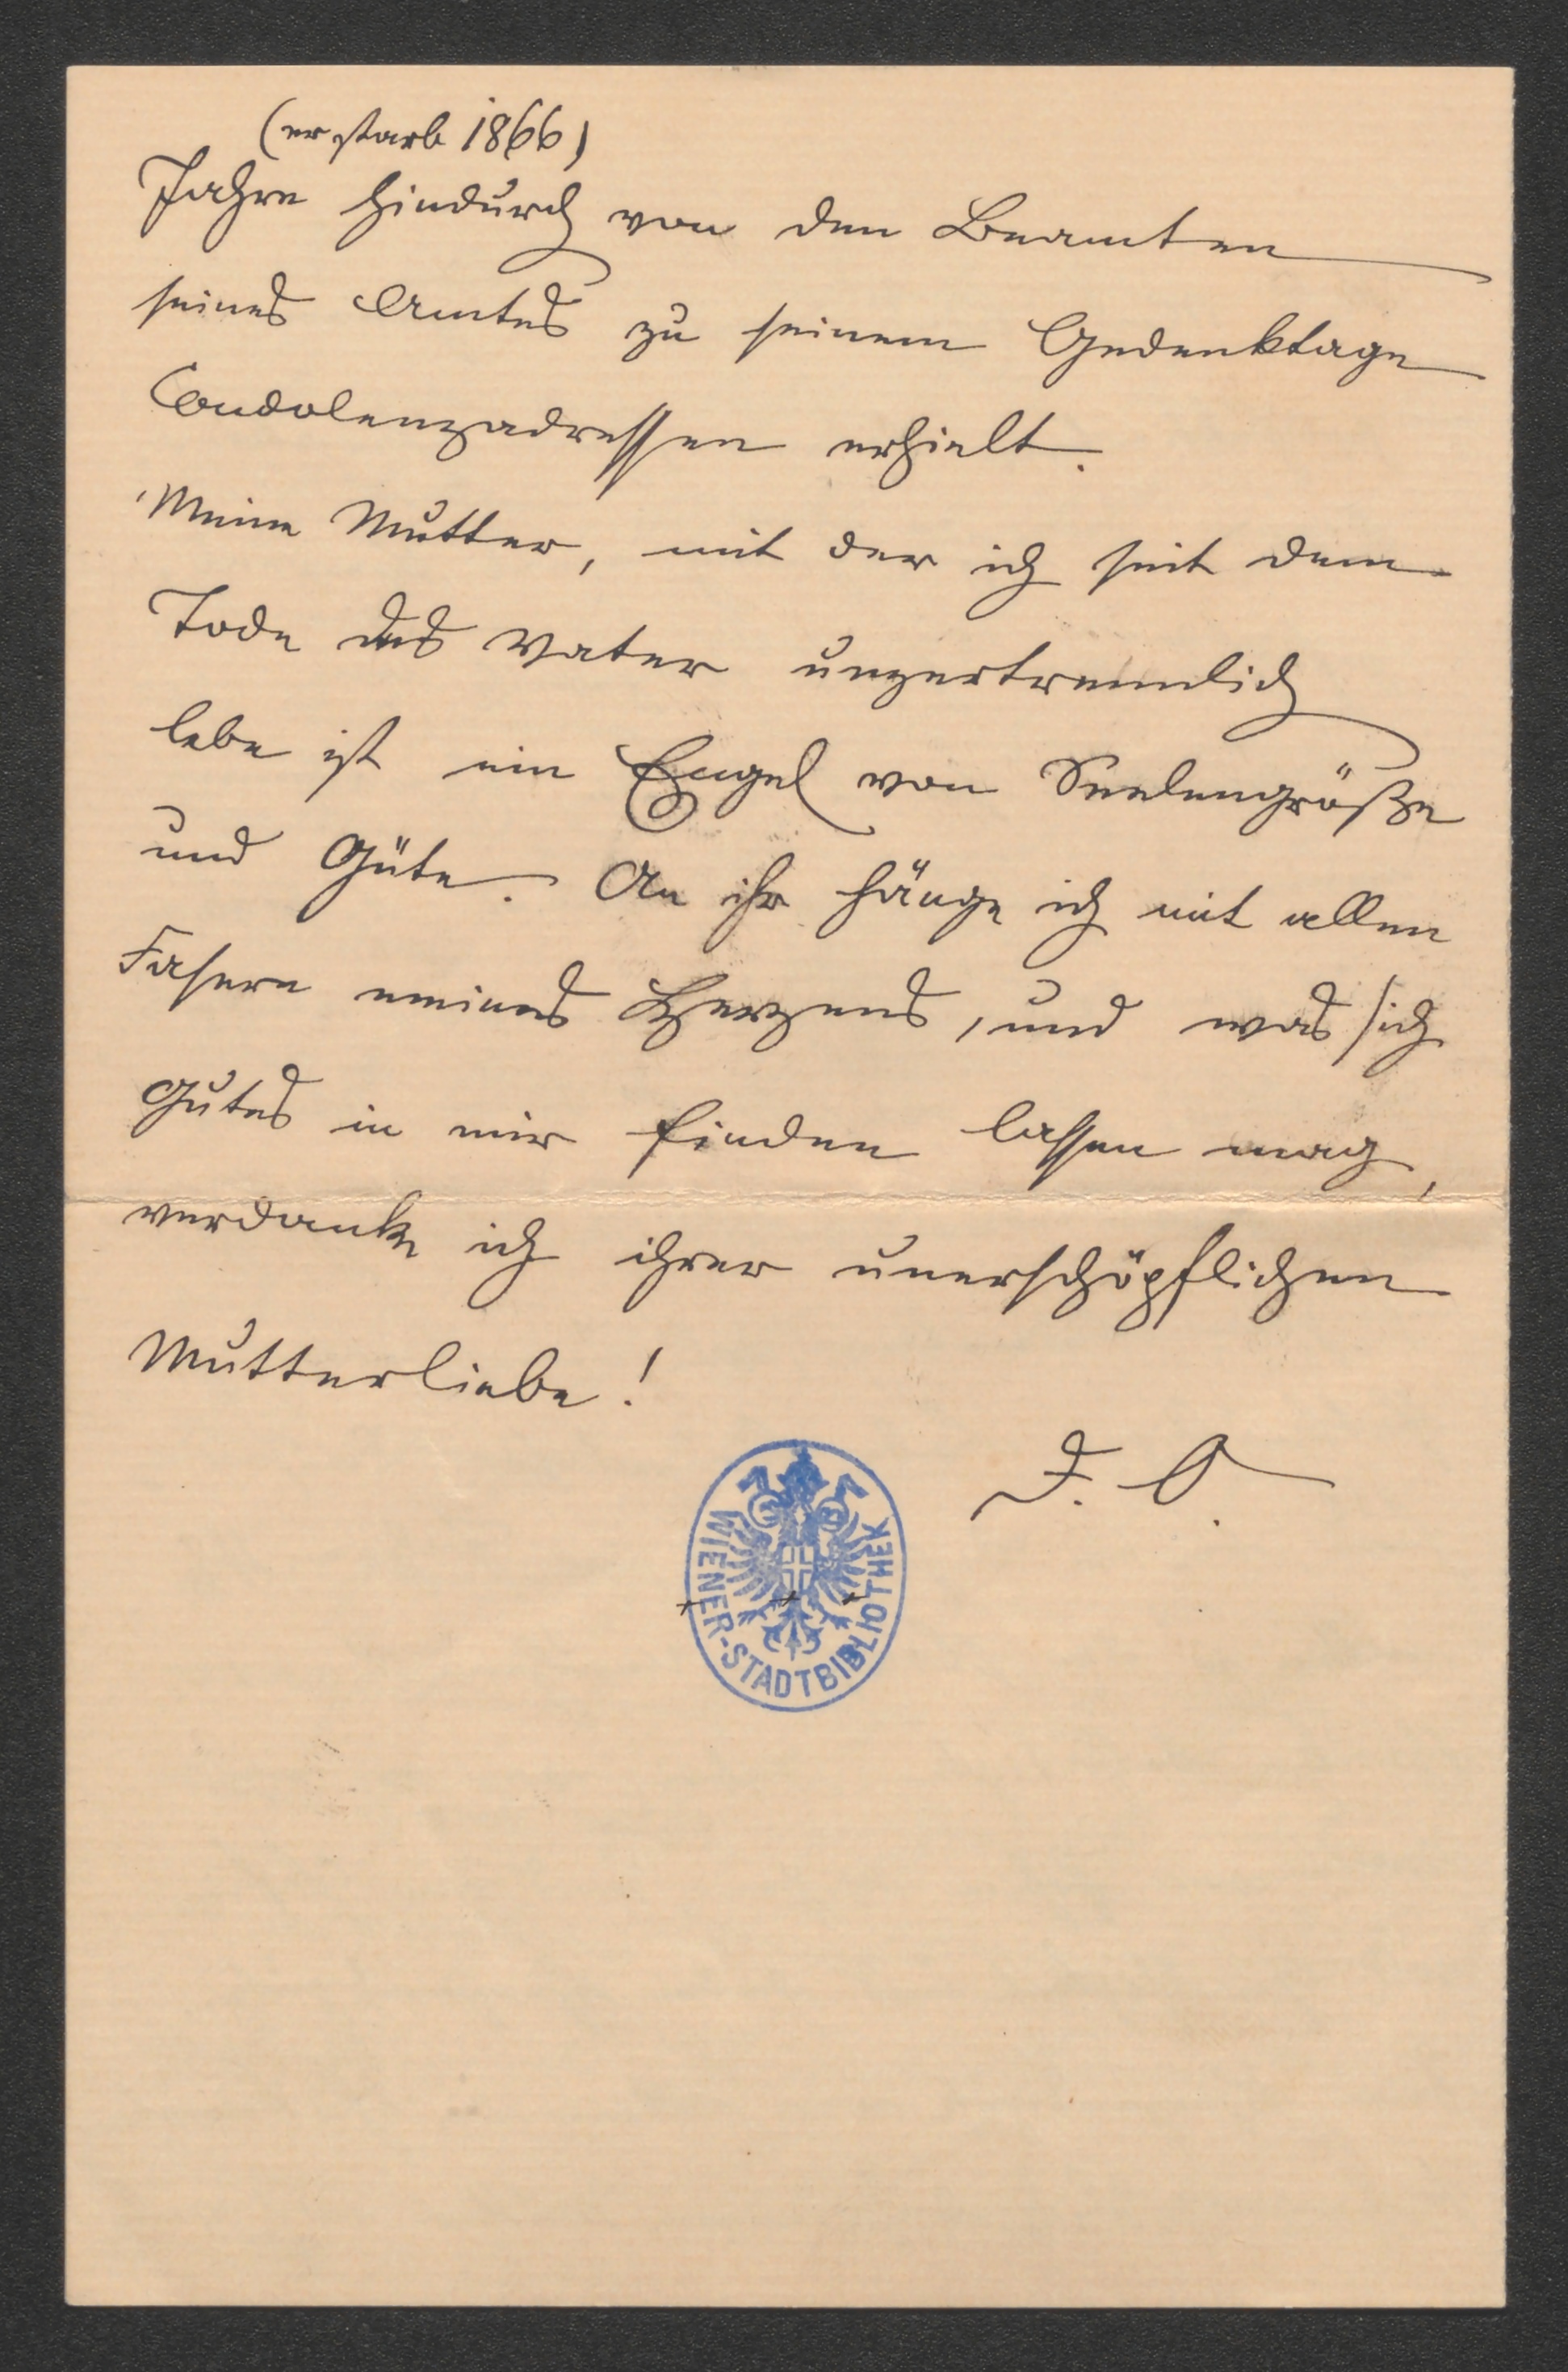 (er starb 1866)
Jahre hindurch von den Beamten
seines Amtes zu seinem Gedenktage
Condolenzadressen erhielt.
Meine Mutter, mit der ich seit dem
Tode des Vater unzertrennlich
lebe ist ein Engel von Seelengröße
und Güte. An ihr hänge ich mit allen
Fasern meines Herzens, und was sich
Gutes in mir finden lassen mag,
verdanke ich ihrer unerschöpflichen
Mutterliebe!
WIENER-STADTBIBLIOTHEK